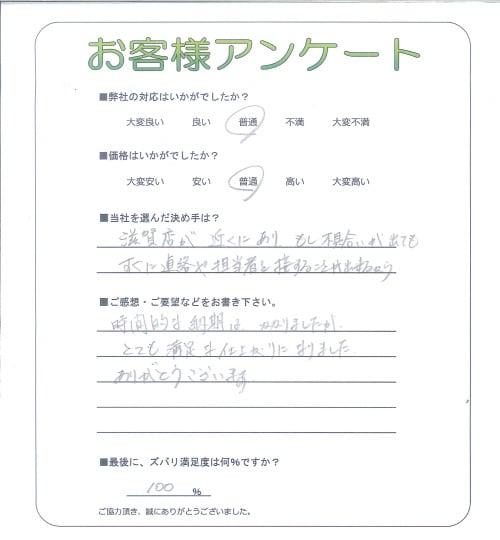 お客様アンケート
■弊社の対応はいかがでしたか？
大変良い 良い 普通 不満 大変不満
■価格はいかがでしたか？
大変安い 安い 普通 高い 大変高い
■当社を選んだ決め手は？
滋賀店が近くにあり、もし不具合いが出ても
すぐに連絡や担当者と接することが出来るよう
■ご感想・ご要望などをお書き下さい。
時間的な納期は、かかりましたが、
とても満足な仕上がりになりました。
ありがとうございます。
■最後に、ズバリ満足度は何%ですか？
100 %
ご協力頂き、誠にありがとうございました。